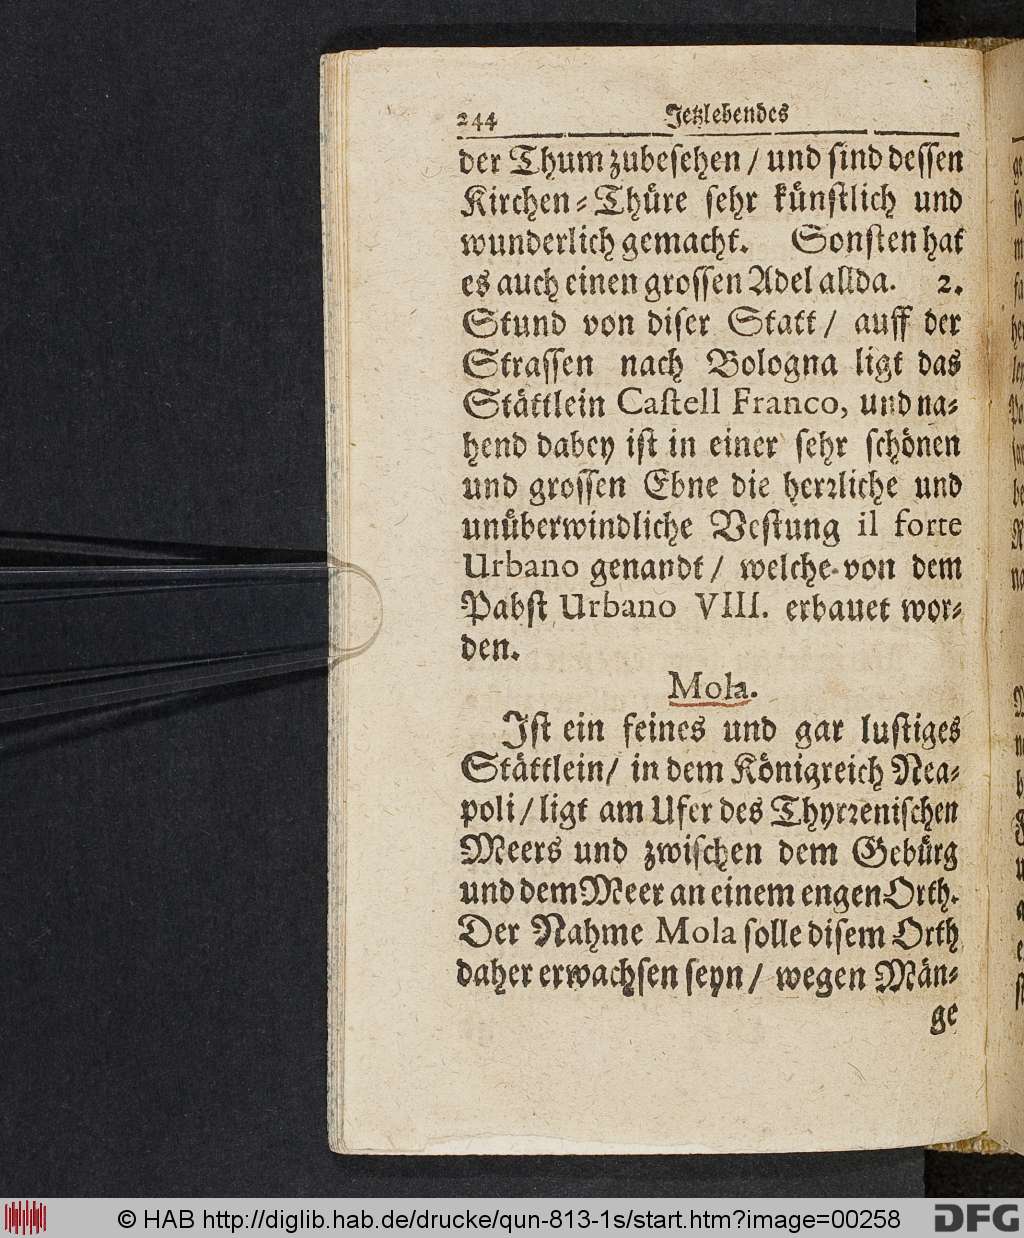 244 Jetzlebendes
der Thum zubesehen / und sind dessen
Kirchen-Thüre sehr künstlich und
wunderlich gemacht. Sonsten hat
es auch einen grossen Adel allda. 2.
Stund von diser Statt / auff der
Strassen nach Bologna ligt das
Stättlein Castell Franco, und na-
hend dabey ist in einer sehr schönen
und grossen Ebne die herrliche und
unüberwindliche Vestung il forte
Urbano genandt / welche von dem
Pabst Urbano VIII. erbauet wor-
den.
Mola.
Ist ein feines und gar lustiges
Stättlein / in dem Königreich Nea-
poli / ligt am Ufer des Thyrrenischen
Meers und zwischen dem Gebürg
und dem Meer an einem engen Orth.
Der Nahme Mola solle disem Orth
daher erwachsen seyn / wegen Män-
ge
© HAB http://diglib.hab.de/drucke/qun-813-1s/start.htm?image=00258 DFG